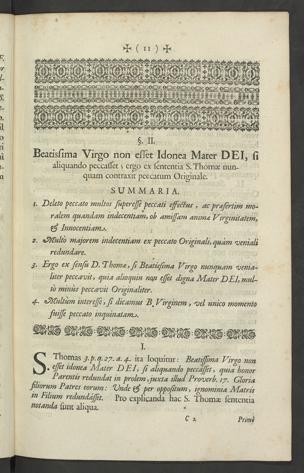 ✠ ( 11 ) ✠
§. II.
Beatissima Virgo non esset Idonea Mater DEI, si
aliquando peccasset; ergo ex sententia S. Thomæ nun-
quam contraxit peccatum Originale.
SUMMARIA.
1. Deleto peccato multos superesse peccati effectus, ac præsertim mo-
ralem quandam indecentiam, ob amissam animæ Virginitatem,
& Innocentiam.
2. Multò majorem indecentiam ex peccato Originali, quàm veniali
redundare.
3. Ergo ex sensu D. Thomæ, si Beatissima Virgo nunquam venia-
liter peccavit, quia alioquin non esset digna Mater DEI, mul-
tò minùs peccavit Originaliter.
4. Multùm interesse, si dicamus B. Virginem, vel unico momento
fuisse peccato inquinatam.
I.
S. Thomas 3. p. q. 27. a. 4. ita loquitur: Beatissima Virgo non
esset idonea Mater DEI, si aliquando peccasset, quia honor
Parentis redundat in prolem, juxta illud Proverb. 17. Gloria
filiorum Patres eorum: Unde & per oppositum, ignominia Matris
in Filium redundâsset. Pro explicanda hac S. Thomæ sententia
notanda sunt aliqua.
C 2 Primò